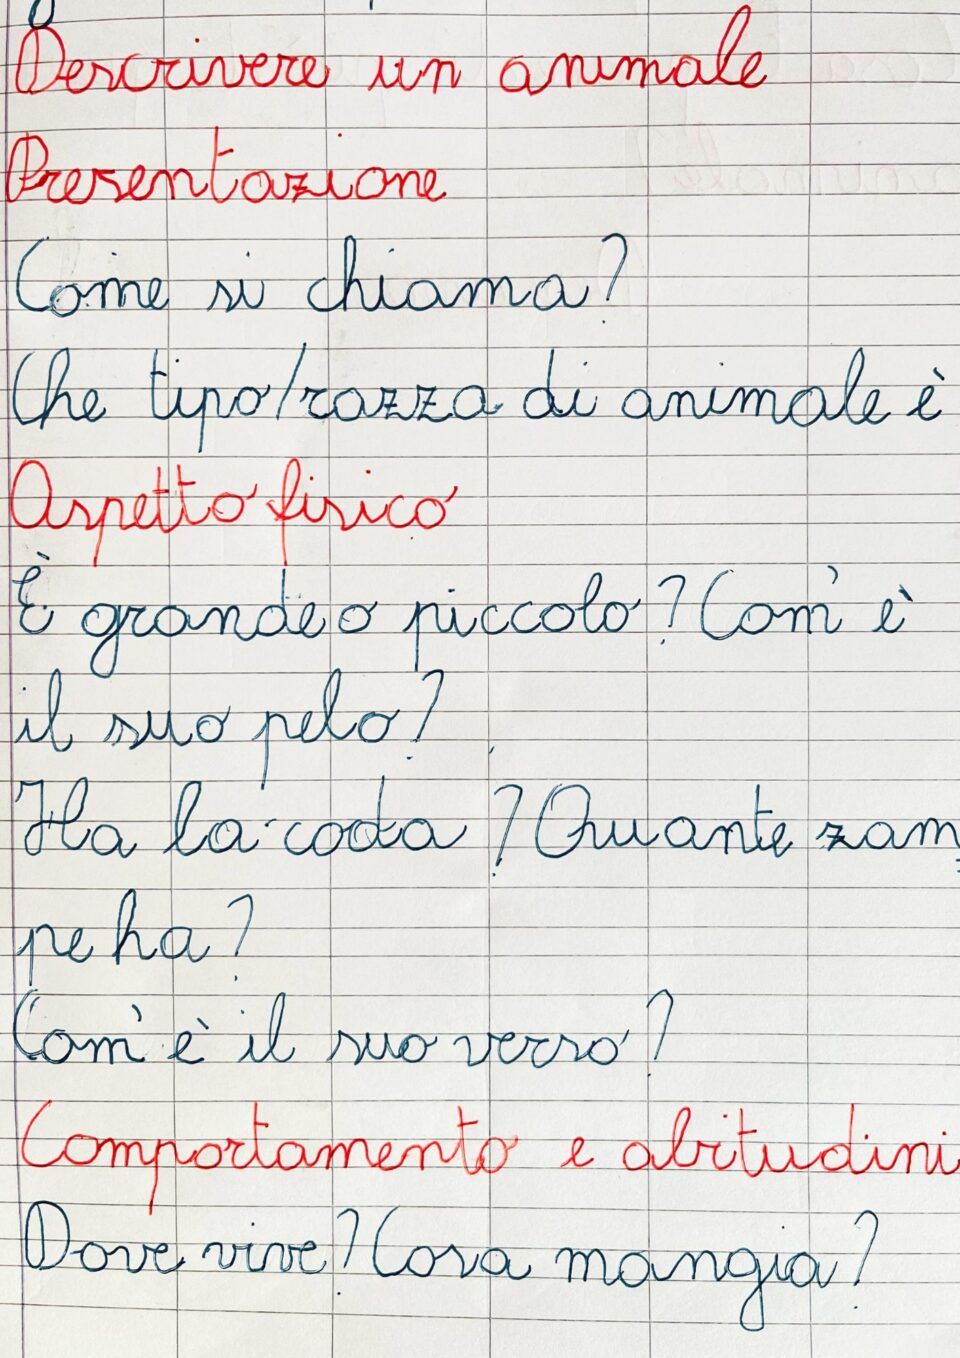 Descrivere un animale
Presentazione
Come si chiama?
Che tipo/razza di animale è
Aspetto fisico
È grande o piccolo? Com'è
il suo pelo?
Ha la coda? Quante zam
pe ha?
Com'è il suo verso?
Comportamento e abitudini
Dove vive? Cosa mangia?